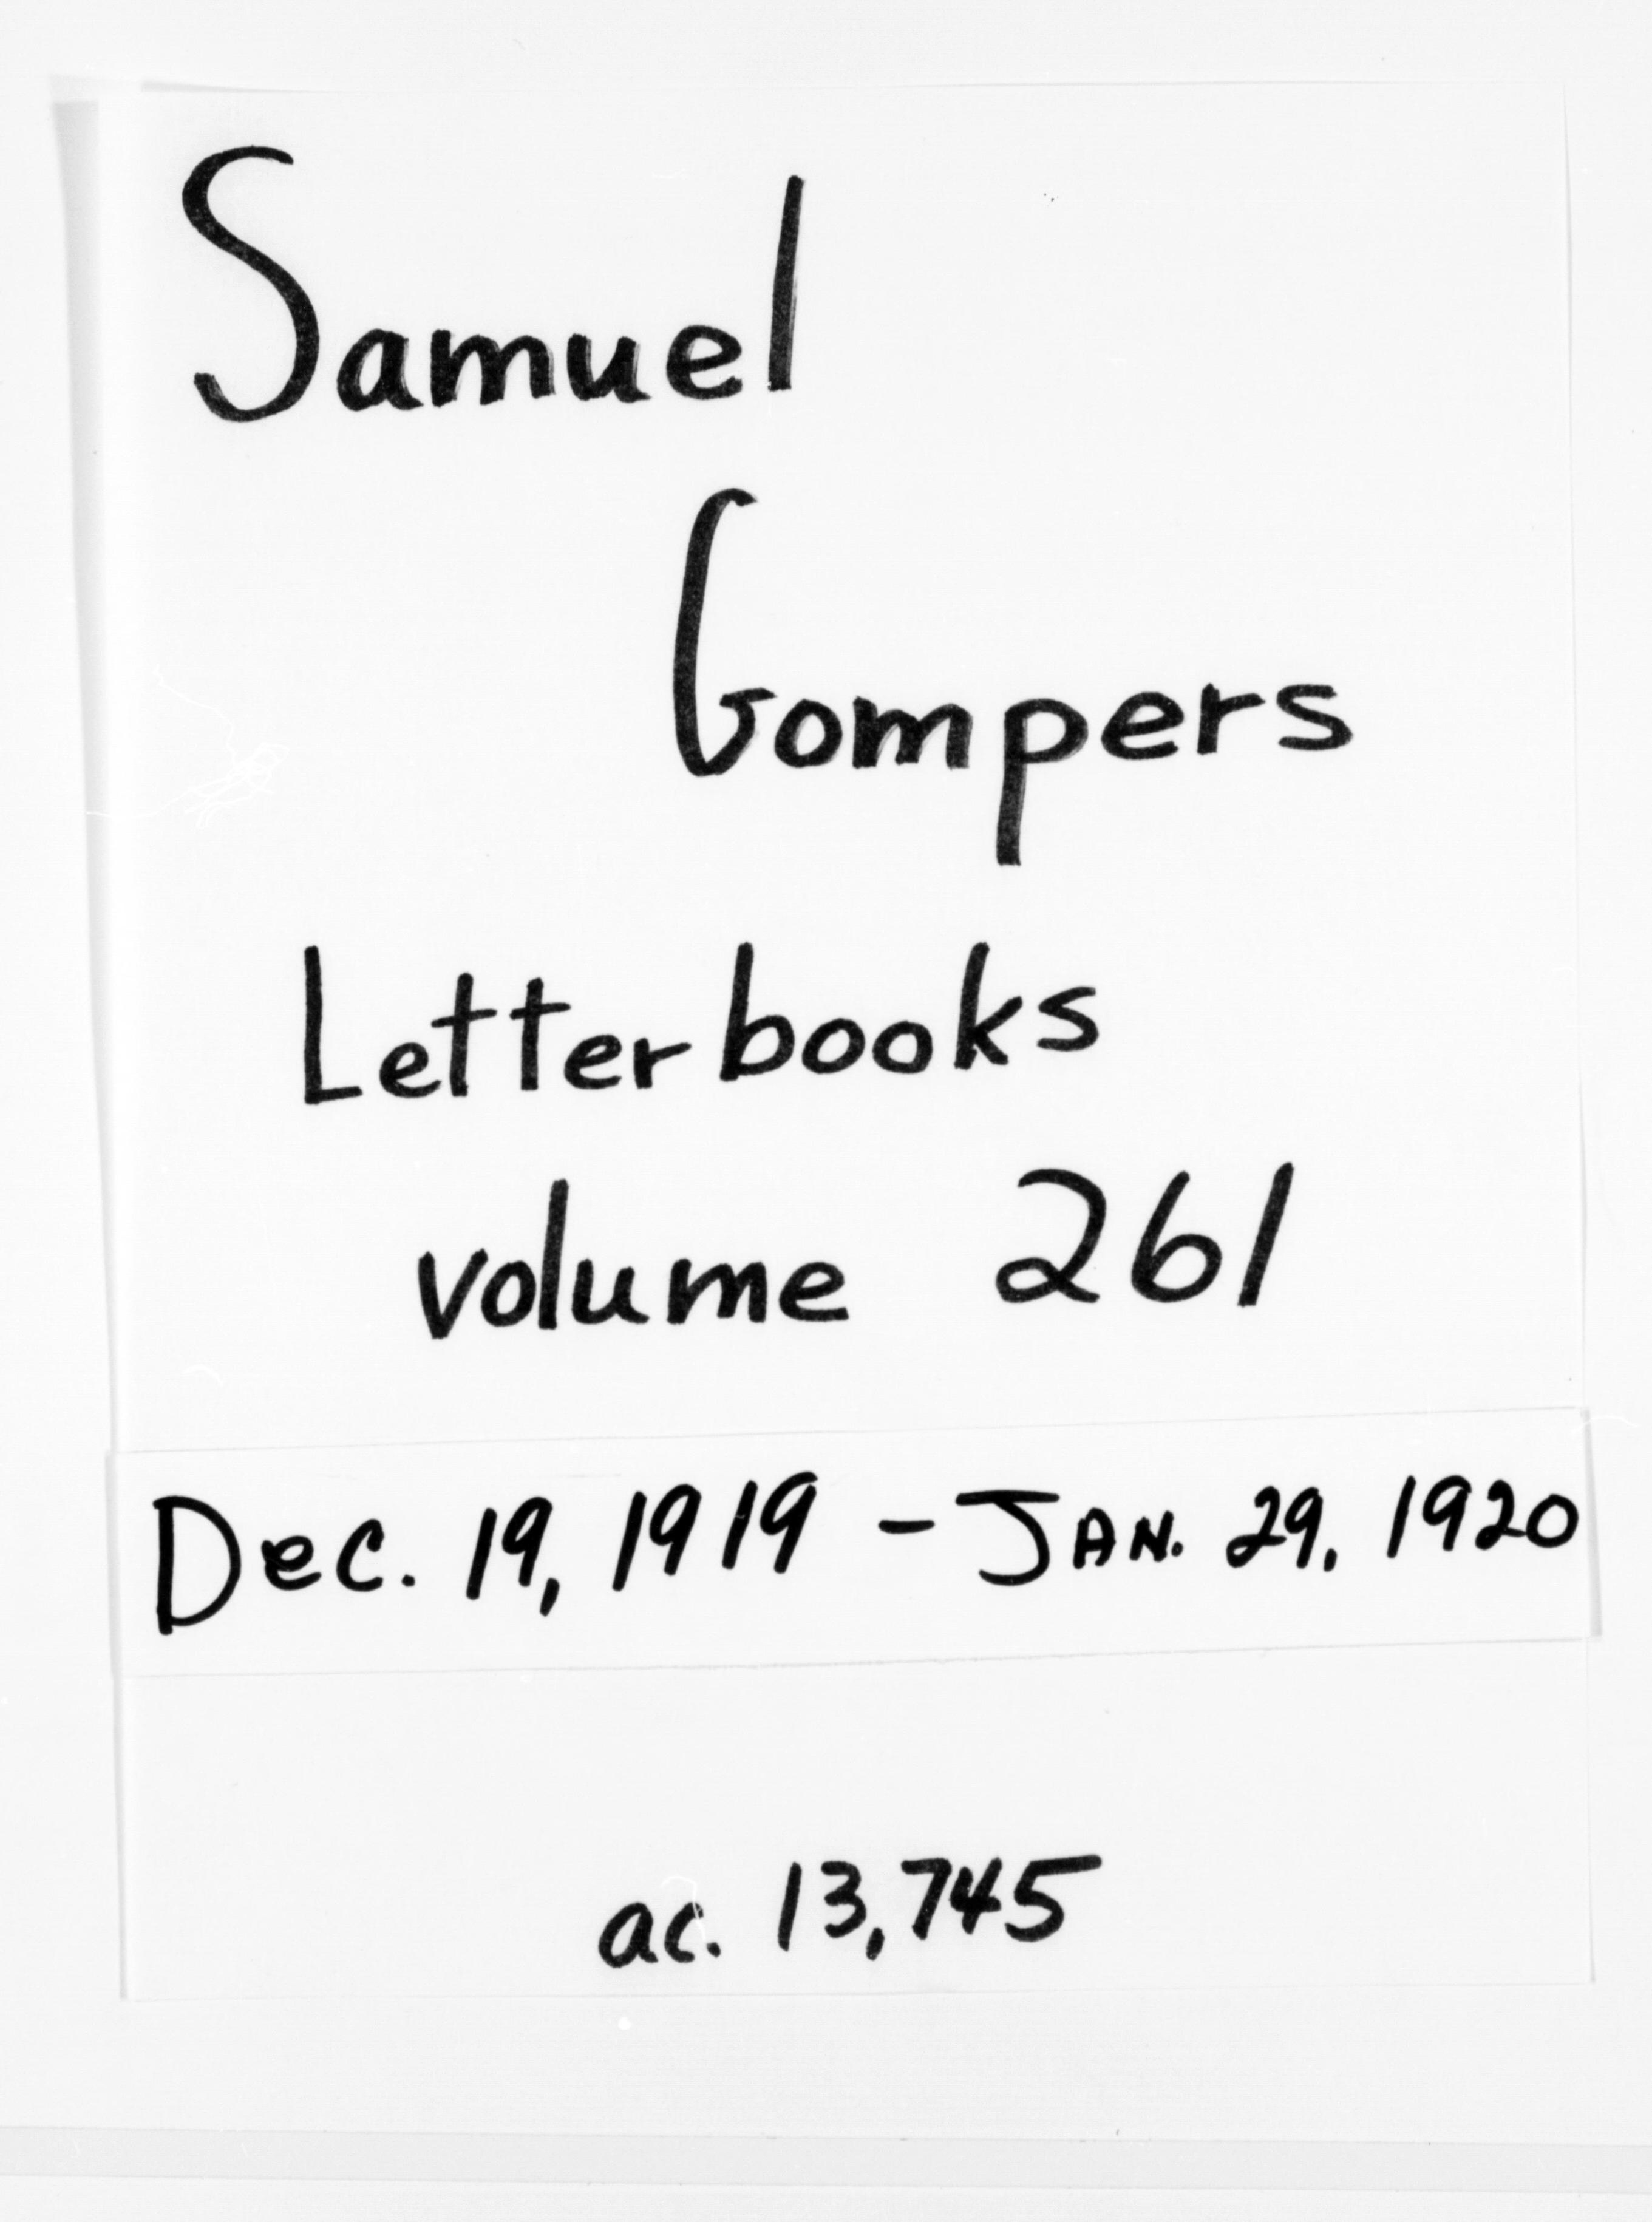 Samuel
Gompers
Letterbooks
volume 261
Dec. 19, 1919 - JAN. 29, 1920
ac. 13,745